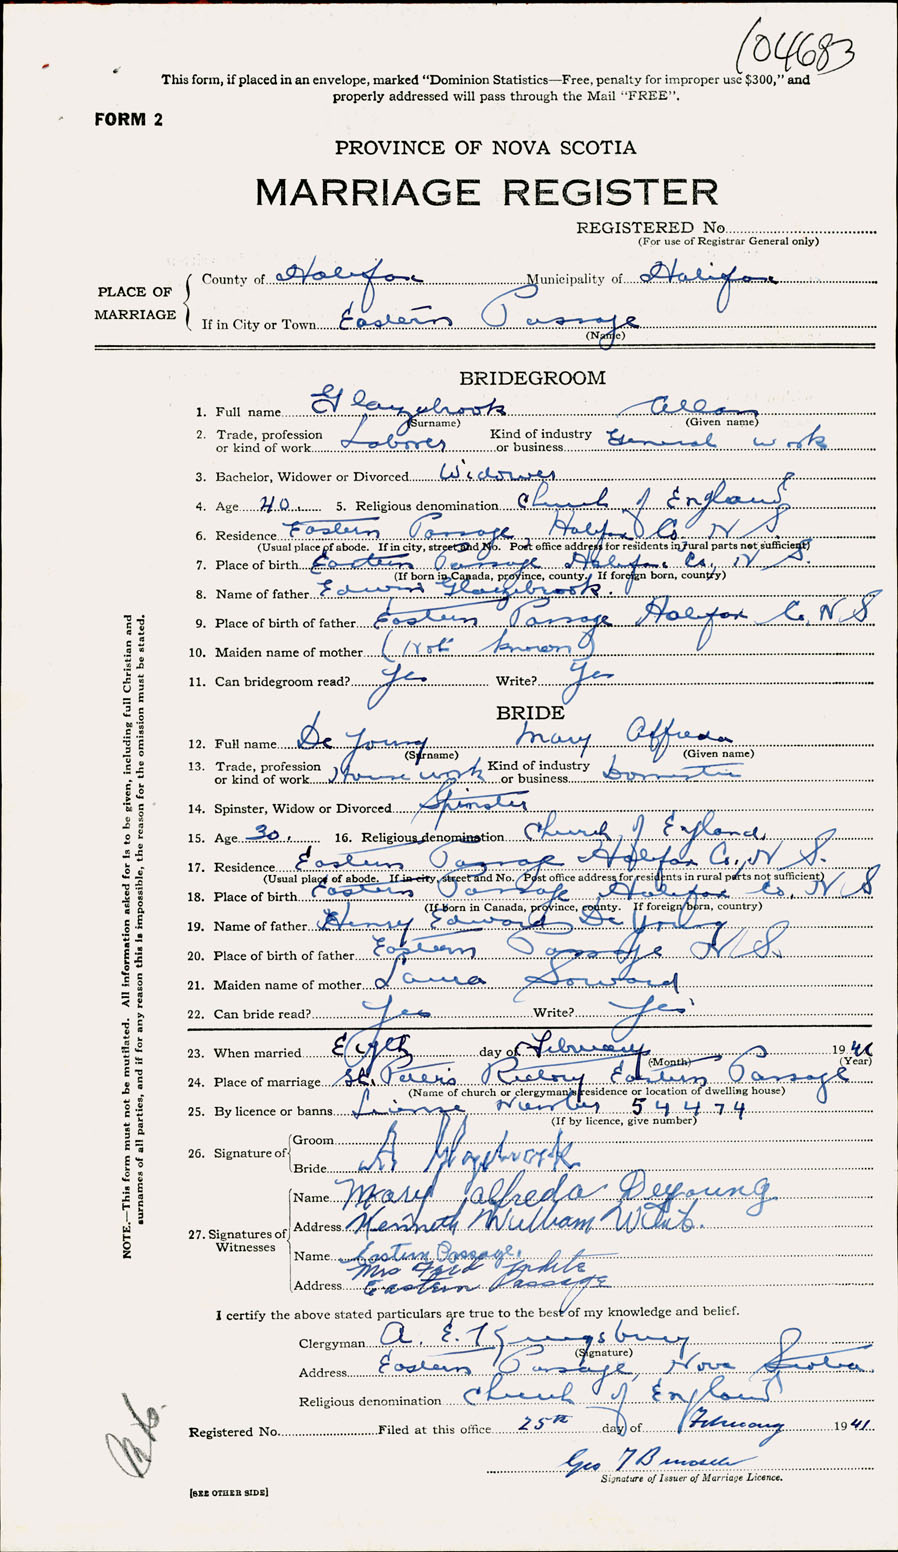 104683
This form, if placed in an envelope, marked "Dominion Statistics—Free, penalty for improper use $300," and
properly addressed will pass through the Mail "FREE".
FORM 2
PROVINCE OF NOVA SCOTIA
MARRIAGE REGISTER
REGISTERED No.
(For use of Registrar General only)
PLACE OF MARRIAGE
County of Halifax Municipality of Halifax
If in City or Town Eastern Passage
(Name)
BRIDEGROOM
1. Full name Glazebrook Allan
(Surname) (Given name)
2. Trade, profession or kind of work Laborer Kind of industry or business General work
3. Bachelor, Widower or Divorced Widower
4. Age 40. 5. Religious denomination Church of England
6. Residence Eastern Passage, Halifax Co. N S
(Usual place of abode. If in city, street and No. Post office address for residents in rural parts not sufficient)
7. Place of birth Eastern Passage Halifax Co., N S.
(If born in Canada, province, county. If foreign born, country)
8. Name of father Edwin Glazebrook.
9. Place of birth of father Eastern Passage Halifax Co. N S
10. Maiden name of mother (Not known)
11. Can bridegroom read? Yes Write? Yes
BRIDE
12. Full name De Young Mary Alfreda
(Surname) (Given name)
13. Trade, profession or kind of work House work Kind of industry or business Domestic
14. Spinster, Widow or Divorced Spinster
15. Age 30. 16. Religious denomination Church of England.
17. Residence Eastern Passage Halifax Co., N S.
(Usual place of abode. If in city, street and No. Post office address for residents in rural parts not sufficient)
18. Place of birth Eastern Passage Halifax Co, N S
(If born in Canada, province, county. If foreign born, country)
19. Name of father Henry Edward De Young
20. Place of birth of father Eastern Passage N S.
21. Maiden name of mother Laura
22. Can bride read? Yes Write? Yes
23. When married day of February 1941
(Month) (Year)
24. Place of marriage St. Peter's Rectory Eastern Passage
(Name of church or clergyman's residence or location of dwelling house)
25. By licence or banns License Number 54474
(If by licence, give number)
26. Signature of Groom
Bride A Glazebrook
27. Signatures of Witnesses
Name Mary Alfreda DeYoung
Address Kenneth William White.
Name Eastern Passage.
Mrs White
Address Eastern Passage
I certify the above stated particulars are true to the best of my knowledge and belief.
Clergyman A. E.
(Signature)
Address Eastern Passage, Nova Scotia
Religious denomination Church of England
Registered No. Filed at this office 25th day of February 1941.
Geo
Signature of Issuer of Marriage Licence.
[SEE OTHER SIDE]
NOTE.—This form must not be mutilated. All information asked for is to be given, including full Christian and
surnames of all parties, and if for any reason this is impossible, the reason for the omission must be stated.